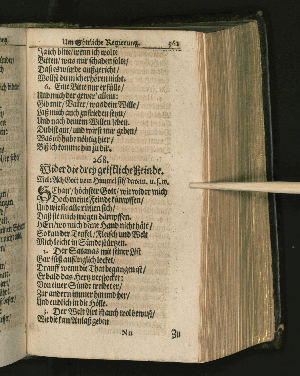 Um Göttliche Regierung. 361
Jauch bitte/ wenn ich wolte
Bitten/ was mir schaden solte/
Daß es würde außgericht/
Wollst du mich erhören nicht.
6. Eine Bitte nur erfülle/
Und mich der gewer' allein:
Gib mir/ Vater/ was dein Wille/
Laß mich auch zufrieden seyn/
Und nach deinem Willen leben.
Du bist gut/ und wirst mir geben/
Was ich hab nöhtig hier/
Biß ich komme hin zu dir.
268.
Wider die drey geistliche Feinde.
Mel: Ach Gott vom Himmel sieh darein. u. s. w.
Schau/ höchster Gott/ wie wider mich
Doch meine Feinde kämpffen/
Und wie sie alle rüsten sich/
Daß sie mich mögen dämpffen.
HErr/ wo mich deine Hand nicht hält/
So kan der Teufel/ Fleisch und Welt
Mich leicht in Sünde stürtzen.
2. Der Satan as mit seiner List
Gar süß anfänglich locket/
Drauff wenn die That begangen ist/
Er bald das Hertz verstocket:
Von einer Sünd' er treibet er/
Zur andern immer hin und her/
Und endlich in die Hölle.
3. Der Welt List ist auch wol bewust/
Wie die kan Anlaß geben
Nn Zu